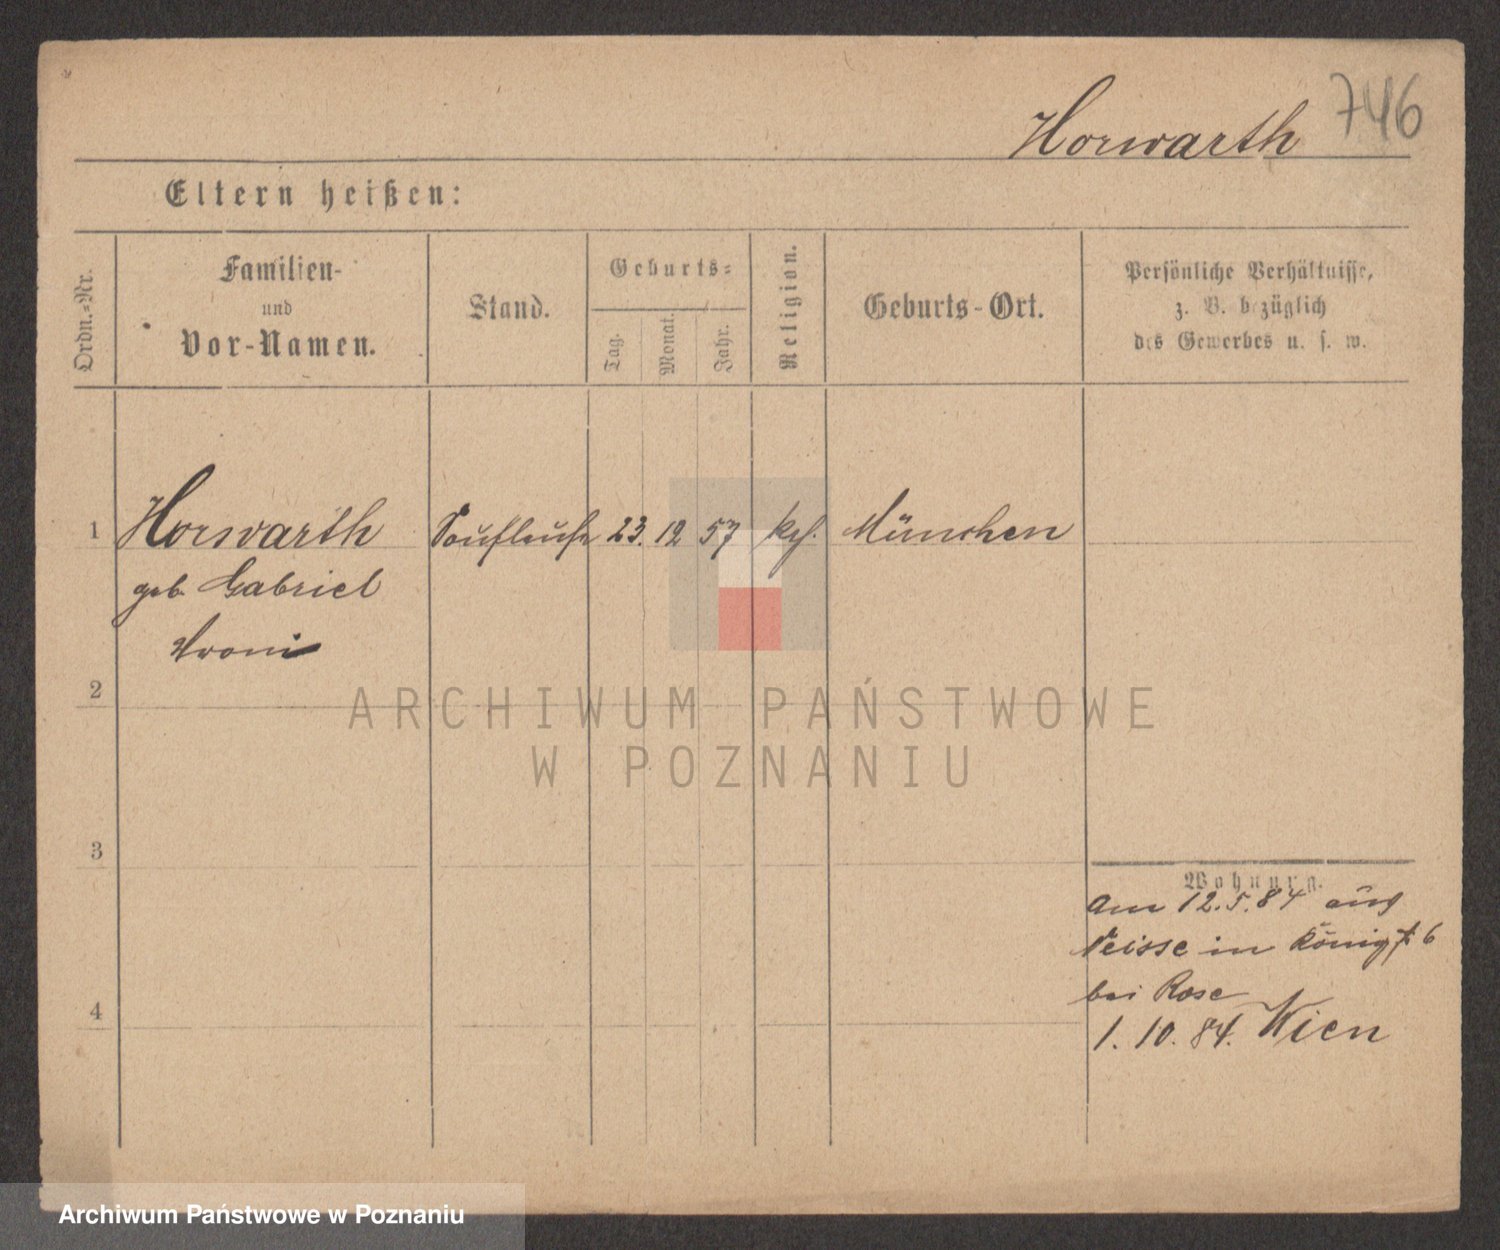 746
Horwarth
Eltern heißen:
Ordn.-Nr.
Familien-
und
Vor-Namen.
Stand.
Geburts-
Tag.
Monat.
Jahr.
Religion.
Geburts-Ort.
Persönliche Verhältnisse,
z. B. bezüglich
des Gewerbes u. s. w.
1 Horwarth 23. 12 57 München
geb. Gabriel
2
3
4
Wohnung.
Am 12.5.84 aus
Neisse in König 6
bei Rose
1. 10. 84. Wien
ARCHIWUM PAŃSTWOWE
W POZNANIU
Archiwum Państwowe w Poznaniu